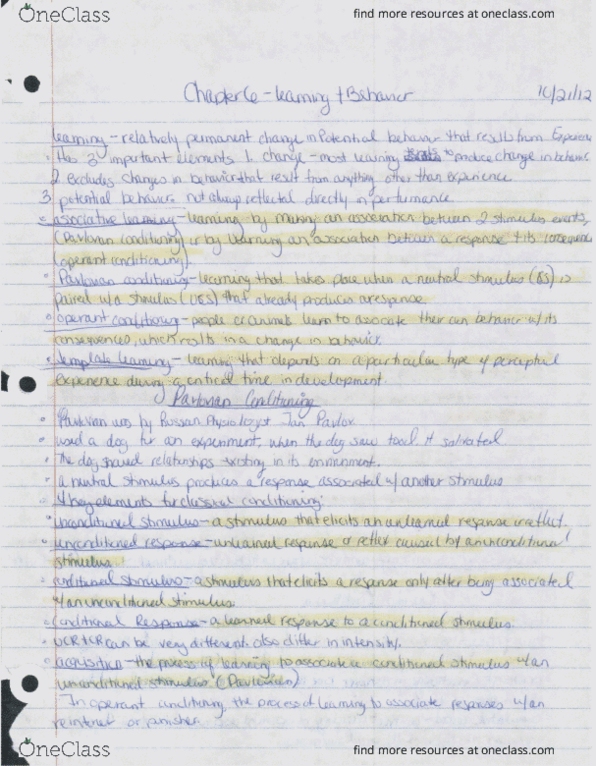 OneClass
find more resources at oneclass.com
Chapter 6 - learning + Behavior 10/21/12
learning - relatively permanent change in Potential behavior that results from Experience
· Has 3 important elements 1. change - most learning produce change in behavior
2. Excludes changes in behavior that result from anything other than experience
3. potential behavior not always reflected directly in performance
associative learning - learning by making an association between 2 stimulus events,
(Pavlovian conditioning) or by learning an association between a response + its consequence
(operant conditioning)
Pavlovian conditioning - learning that takes place when a neutral stimulus (CS) is
paired w/a stimulus (UCS) that already produces a response.
operant conditioning - people or animals learn to associate their own behavior w/its
consequences, which results in a change in behavior.
template learning - learning that depends on a particular type of perceptual
experience during a critical time in development.
Pavlovian Conditioning
Pavlovian was by Russian Physiologist Ivan Pavlov
used a dog for an experiment, when the dog saw food it salivated
The dog relationships existing in its environment.
a neutral stimulus produces a response associated w/ another stimulus
4 key elements for classical conditioning:
unconditioned stimulus - a stimulus that elicits an unlearned response or reflex.
unconditioned response - unlearned response or reflex caused by an unconditioned
stimulus.
conditioned stimulus - a stimulus that elicits a response only after being associated
w/an unconditioned stimulus.
Conditional Response - a learned response to a conditioned stimulus.
UCR + CR can be very different. also differ in intensity.
acquisition - the process of learning to associate a conditioned stimulus w/an
unconditioned stimulus (Pavlovian)
In operant conditioning, the process of learning to associate responses w/an
or punisher
OneClass
find more resources at oneclass.com